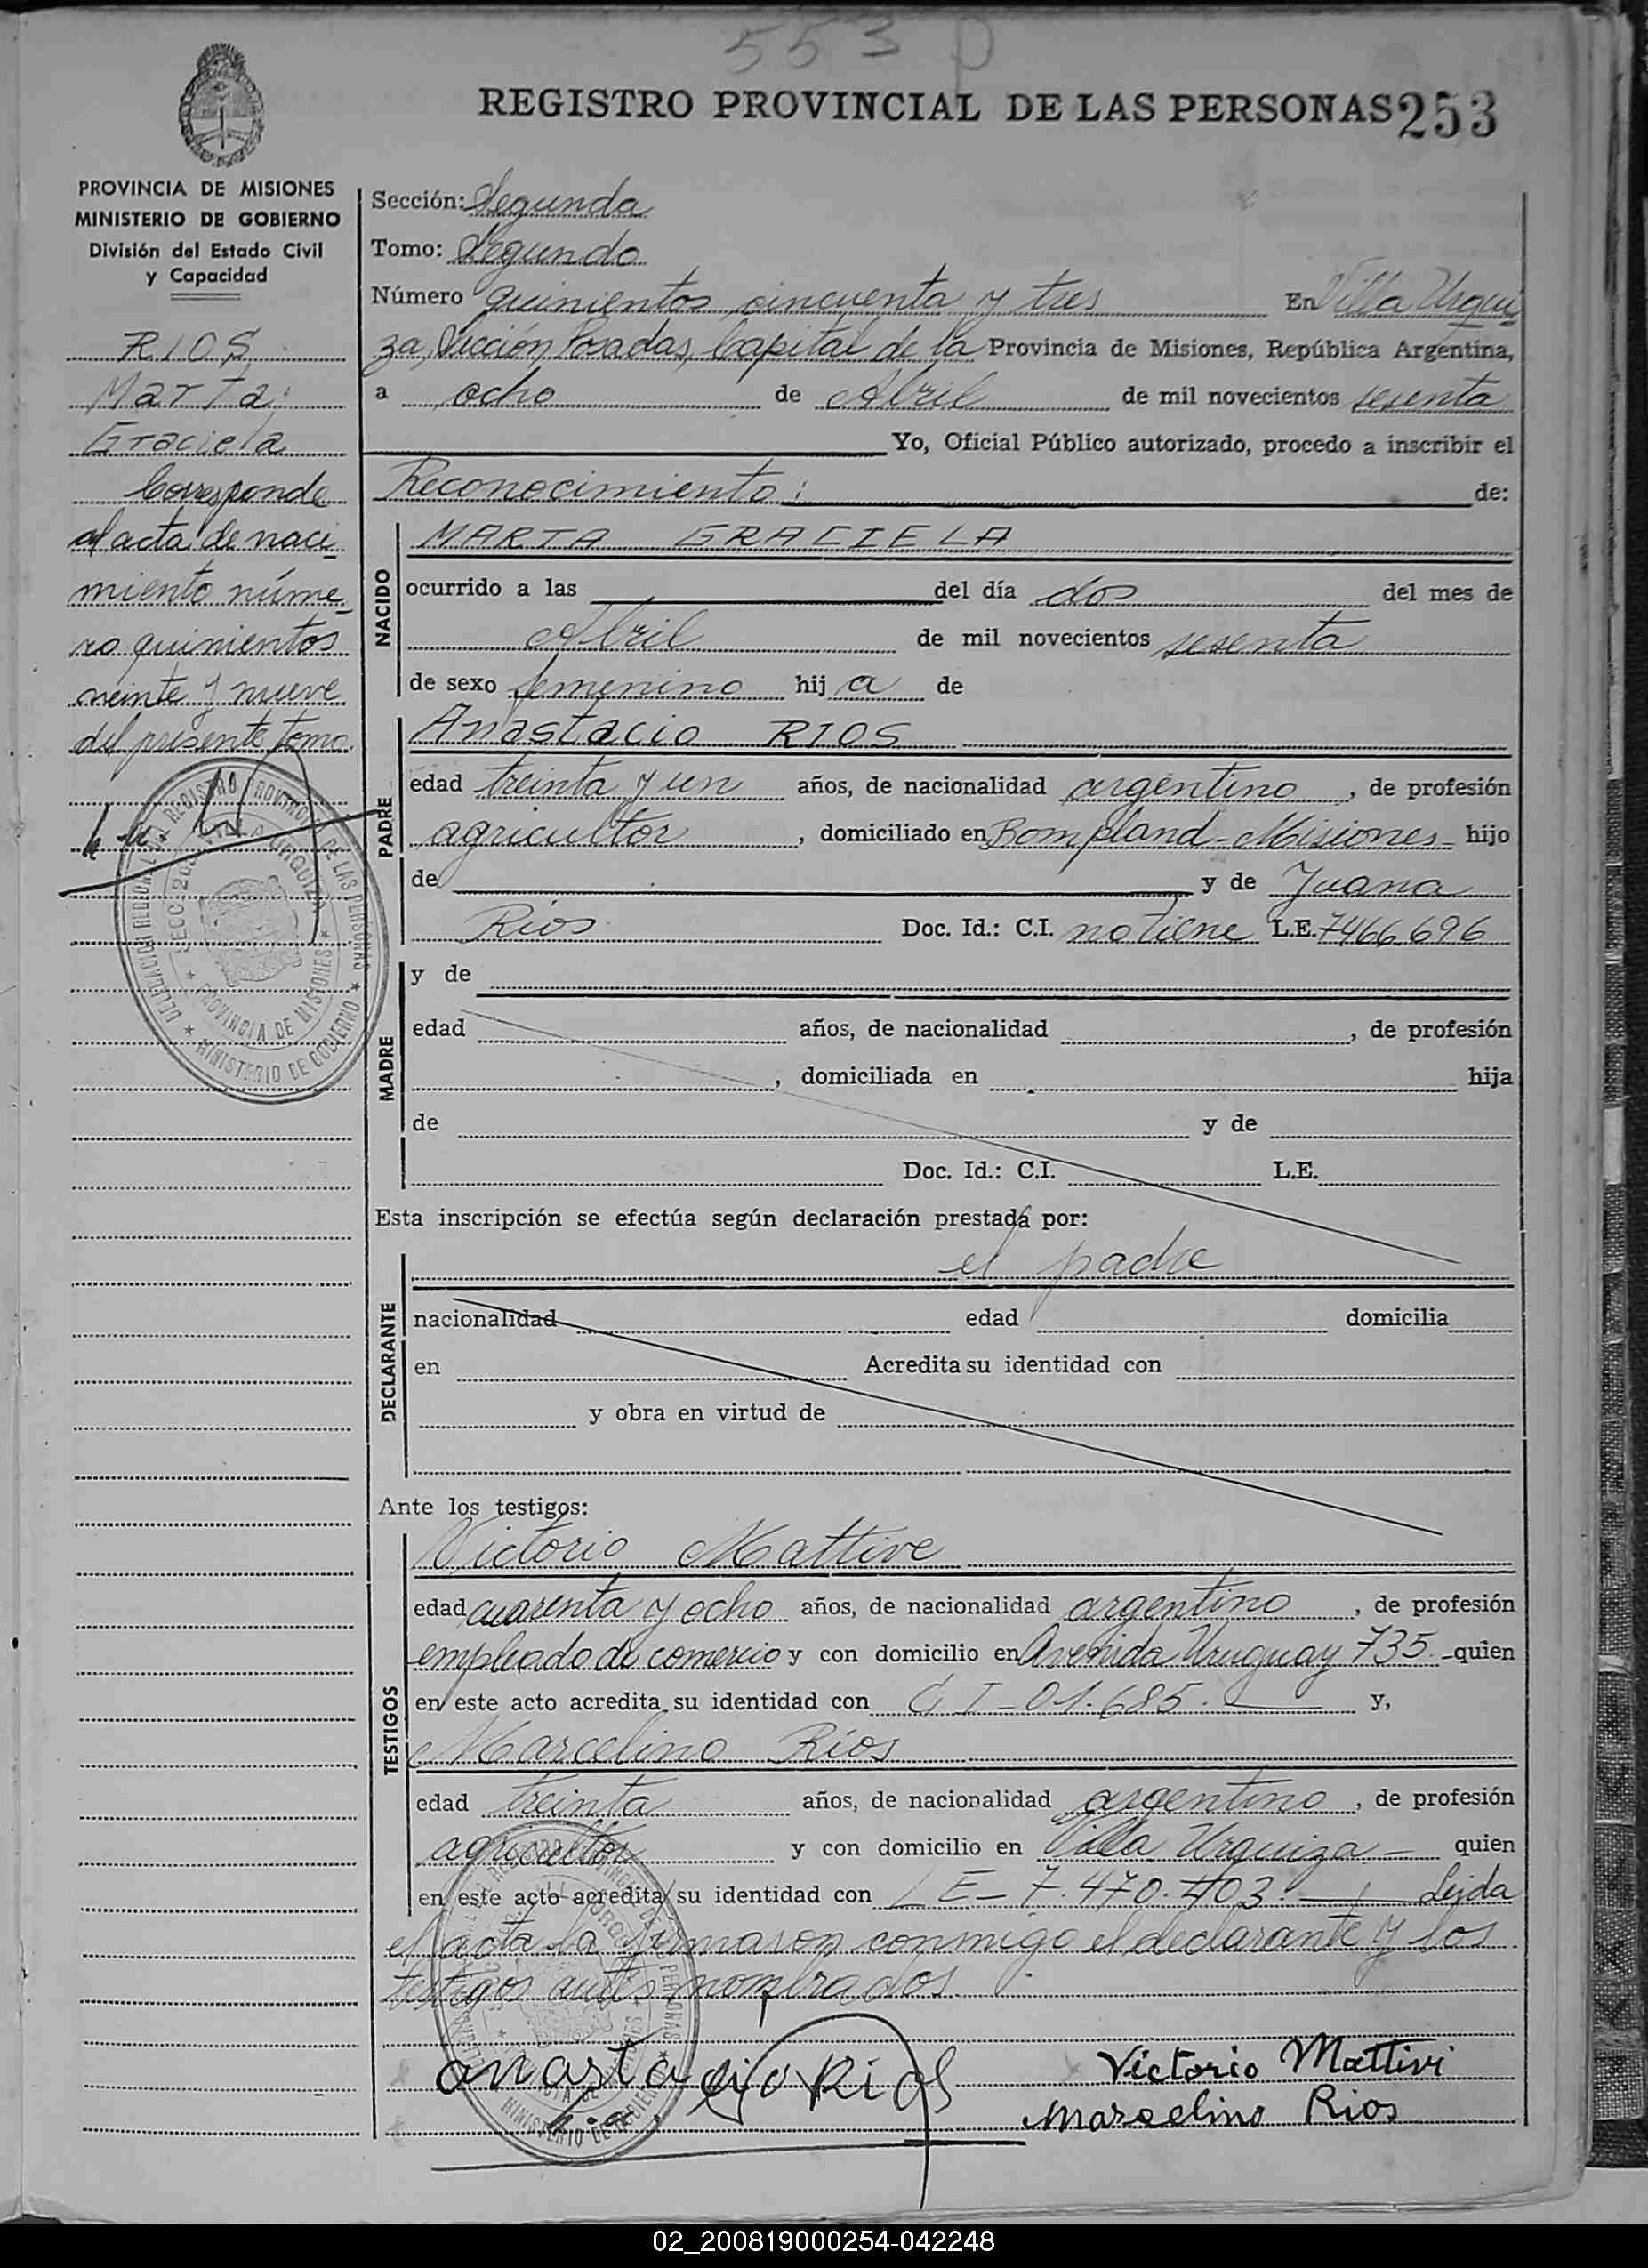 553 p
REGISTRO PROVINCIAL DE LAS PERSONAS 253
PROVINCIA DE MISIONES
MINISTERIO DE GOBIERNO
División del Estado Civil
y Capacidad
RIOS
Marta
Graciela
Corresponde
al acta de naci-
miento núme-
ro quinientos
veinte y nueve
del presente tomo.
Sección: Segunda
Tomo: Segundo
Número quinientos cincuenta y tres En Villa Urqui
za, Sección Posadas, Capital de la Provincia de Misiones, República Argentina,
a ocho de Abril de mil novecientos sesenta
Yo, Oficial Público autorizado, procedo a inscribir el
Reconocimiento: de:
NACIDO
MARTA GRACIELA
ocurrido a las del día dos del mes de
Abril de mil novecientos sesenta
de sexo femenino hija de
PADRE
Anastacio RIOS
edad treinta y un años, de nacionalidad argentino, de profesión
agricultor, domiciliado en Bompland-Misiones- hijo
de y de Juana
Rios Doc. Id.: C.I. no tiene L.E. 7466.696
MADRE
y de
edad años, de nacionalidad , de profesión
, domiciliada en hija
de y de
Doc. Id.: C.I. L.E.
Esta inscripción se efectúa según declaración prestada por:
el padre
DECLARANTE
nacionalidad edad domicilia
en Acredita su identidad con
y obra en virtud de
Ante los testigos:
TESTIGOS
Victorio Mattive
edad cuarenta y ocho años, de nacionalidad argentino, de profesión
empleado de comercio y con domicilio en Avenida Uruguay 735.- quien
en este acto acredita su identidad con C I - 01.685. y,
Marcelino Ríos
edad treinta años, de nacionalidad argentino, de profesión
agricultor y con domicilio en Villa Urquiza - quien
en este acto acredita su identidad con LE- 7.470.403. Leida
el acta la firmaron conmigo el declarante y los
testigos antes nombrados.
anastacijo Rios
Victorio Mattivi
Marcelino Rios
DELEGACION REGIONAL DEL REGISTRO PROVINCIAL DE LAS PERSONAS
SECC. 2da. VILLA URQUIZA
PROVINCIA DE MISIONES
MINISTERIO DE GOBIERNO
02_200819000254-042248